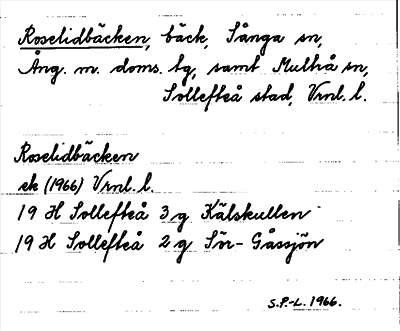 Roselidbäcken, bäck, Sånga sn,
Ång. m. doms. tg, samt Multrå sn,
Sollefteå stad, Vrnl. l.
Roselidbäcken
ek (1966) Vrnl. l.
19 H Sollefteå 3 g Kälskullen
19 H Sollefteå 2 g Sör-Gåssjön
S.P.-L. 1966.